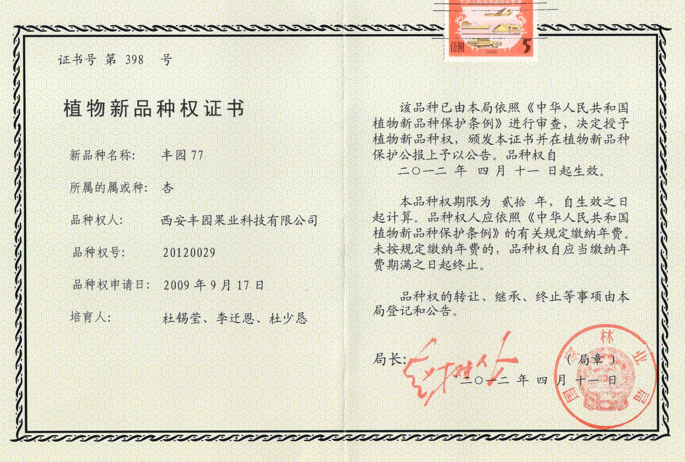 证书号 第 398 号
植物新品种权证书
新品种名称： 丰园77
所属的属或种： 杏
品种权人： 西安丰园果业科技有限公司
品种权号： 20120029
品种权申请日： 2009 年 9 月 17 日
培育人： 杜锡莹、李迁恩、杜少恳
伍圆
5
该品种已由本局依照《中华人民共和国
植物新品种保护条例》进行审查，决定授予
植物新品种权，颁发本证书并在植物新品种
保护公报上予以公告。品种权自
二〇一二 年 四 月 十一 日起生效。
本品种权期限为 贰拾 年，自生效之日
起计算。品种权人应依照《中华人民共和国
植物新品种保护条例》的有关规定缴纳年费。
未按规定缴纳年费的，品种权自应当缴纳年
费期满之日起终止。
品种权的转让、继承、终止等事项由本
局登记和公告。
局长：
（局章）
二〇一二 年 四 月 十一 日
国家林业局